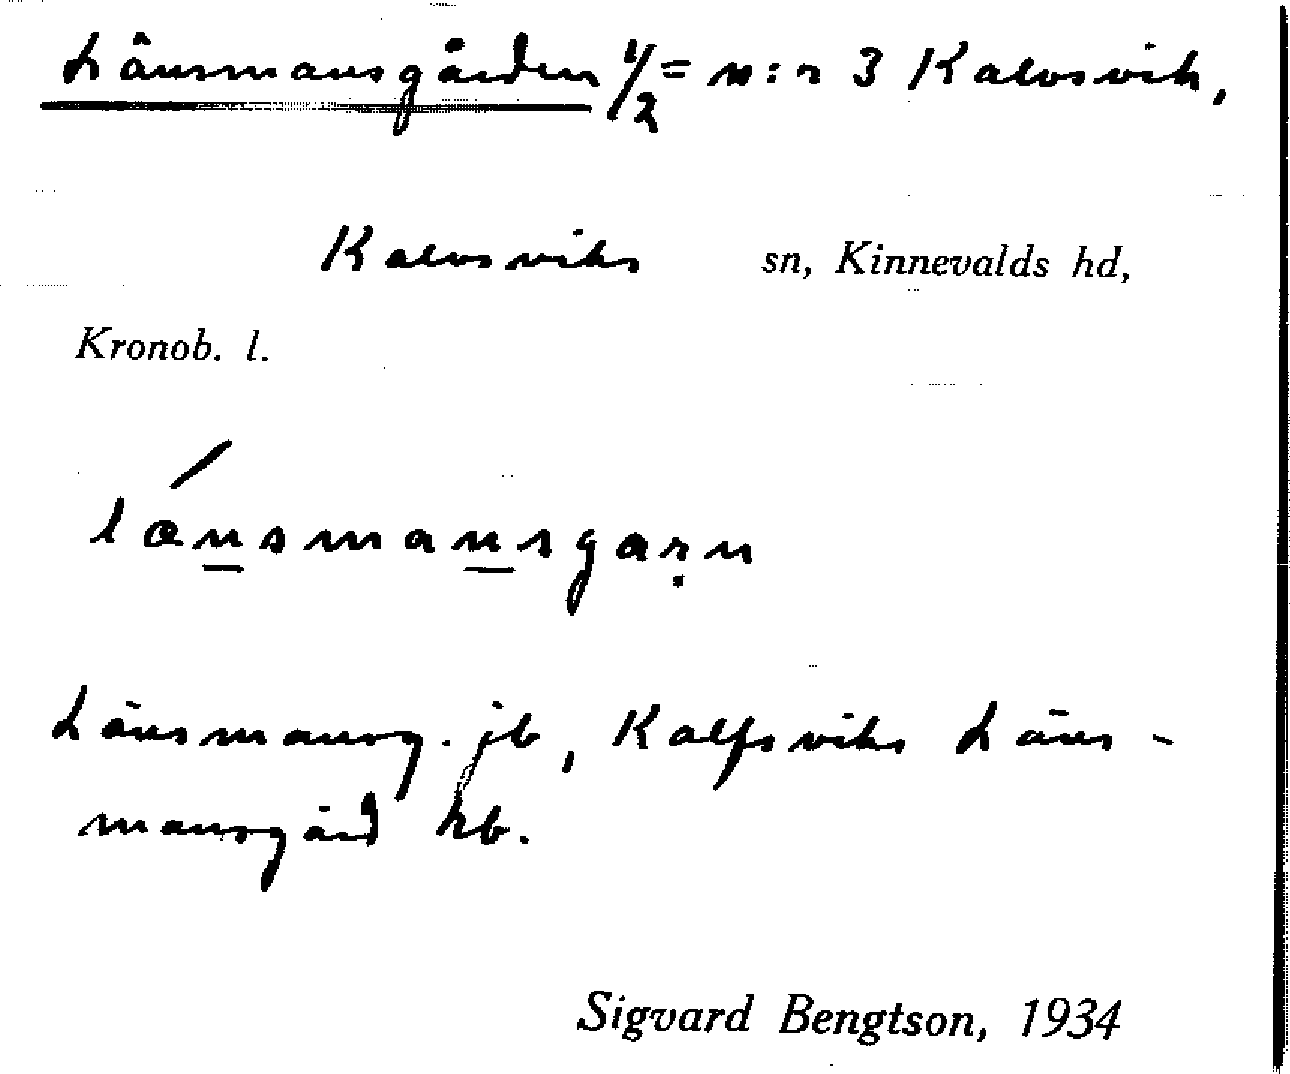 Länsmansgården 1/2 = n:r 3 Kalvsvik,
Kalvsviks sn, Kinnevalds hd,
Kronob. l.
lænsmansgaṛn
Länsmansg. jb, Kalfsviks Läns-
mansgård hb.
Sigvard Bengtson, 1934